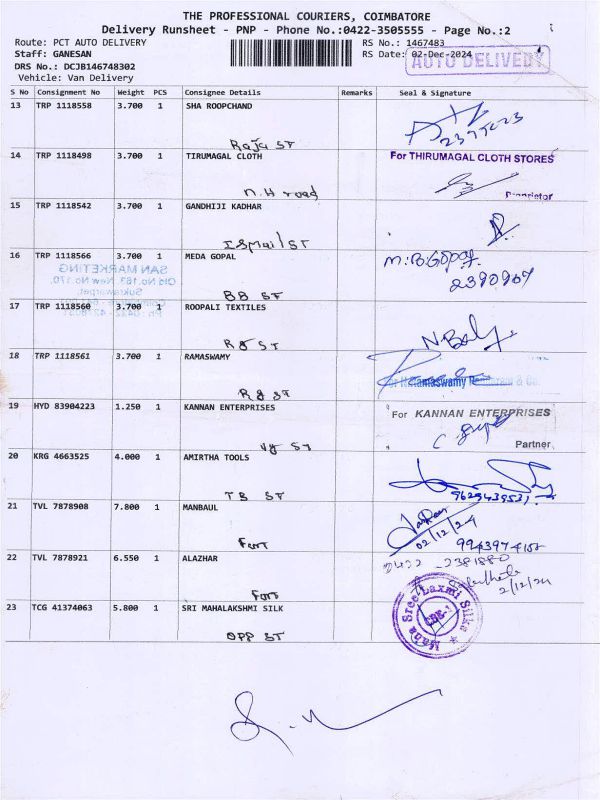 THE PROFESSIONAL COURIERS, COIMBATORE
Delivery Runsheet - PNP - Phone No.:0422-3505555 - Page No.:2
Route: PCT AUTO DELIVERY
RS No.: 1467483
Staff: GANESAN
RS Date: 02-Dec-2024
AUTO DELIVERY
DRS No.: DCJB146748302
Vehicle: Van Delivery
S No Consignment No Weight PCS Consignee Details Remarks Seal & Signature
13 TRP 1118558 3.700 1 SHA ROOPCHAND
Raja ST
14 TRP 1118498 3.700 1 TIRUMAGAL CLOTH For THIRUMAGAL CLOTH STORES
N.H road Proprietor
15 TRP 1118542 3.700 1 GANDHIJI KADHAR
ISmail ST
16 TRP 1118566 3.700 1 MEDA GOPAL M.B.Gopal
SAN MARKETING
Old No.183, New No.170,
Sukrawarpet,
BB ST
17 TRP 1118560 3.700 1 ROOPALI TEXTILES
RG ST
18 TRP 1118561 3.700 1 RAMASWAMY
RG ST
19 HYD 83904223 1.250 1 KANNAN ENTERPRISES For KANNAN ENTERPRISES
VY ST Partner
20 KRG 4663525 4.000 1 AMIRTHA TOOLS
TB ST 9629439531
21 TVL 7878908 7.800 1 MANBAUL
02/12/24
Fort
22 TVL 7878921 6.550 1 ALAZHAR
0422-2381880
2/12/24
Fort
23 TCG 41374063 5.800 1 SRI MAHALAKSHMI SILK
Maha Sree Laxmi Silks
CBE-1
OPP ST